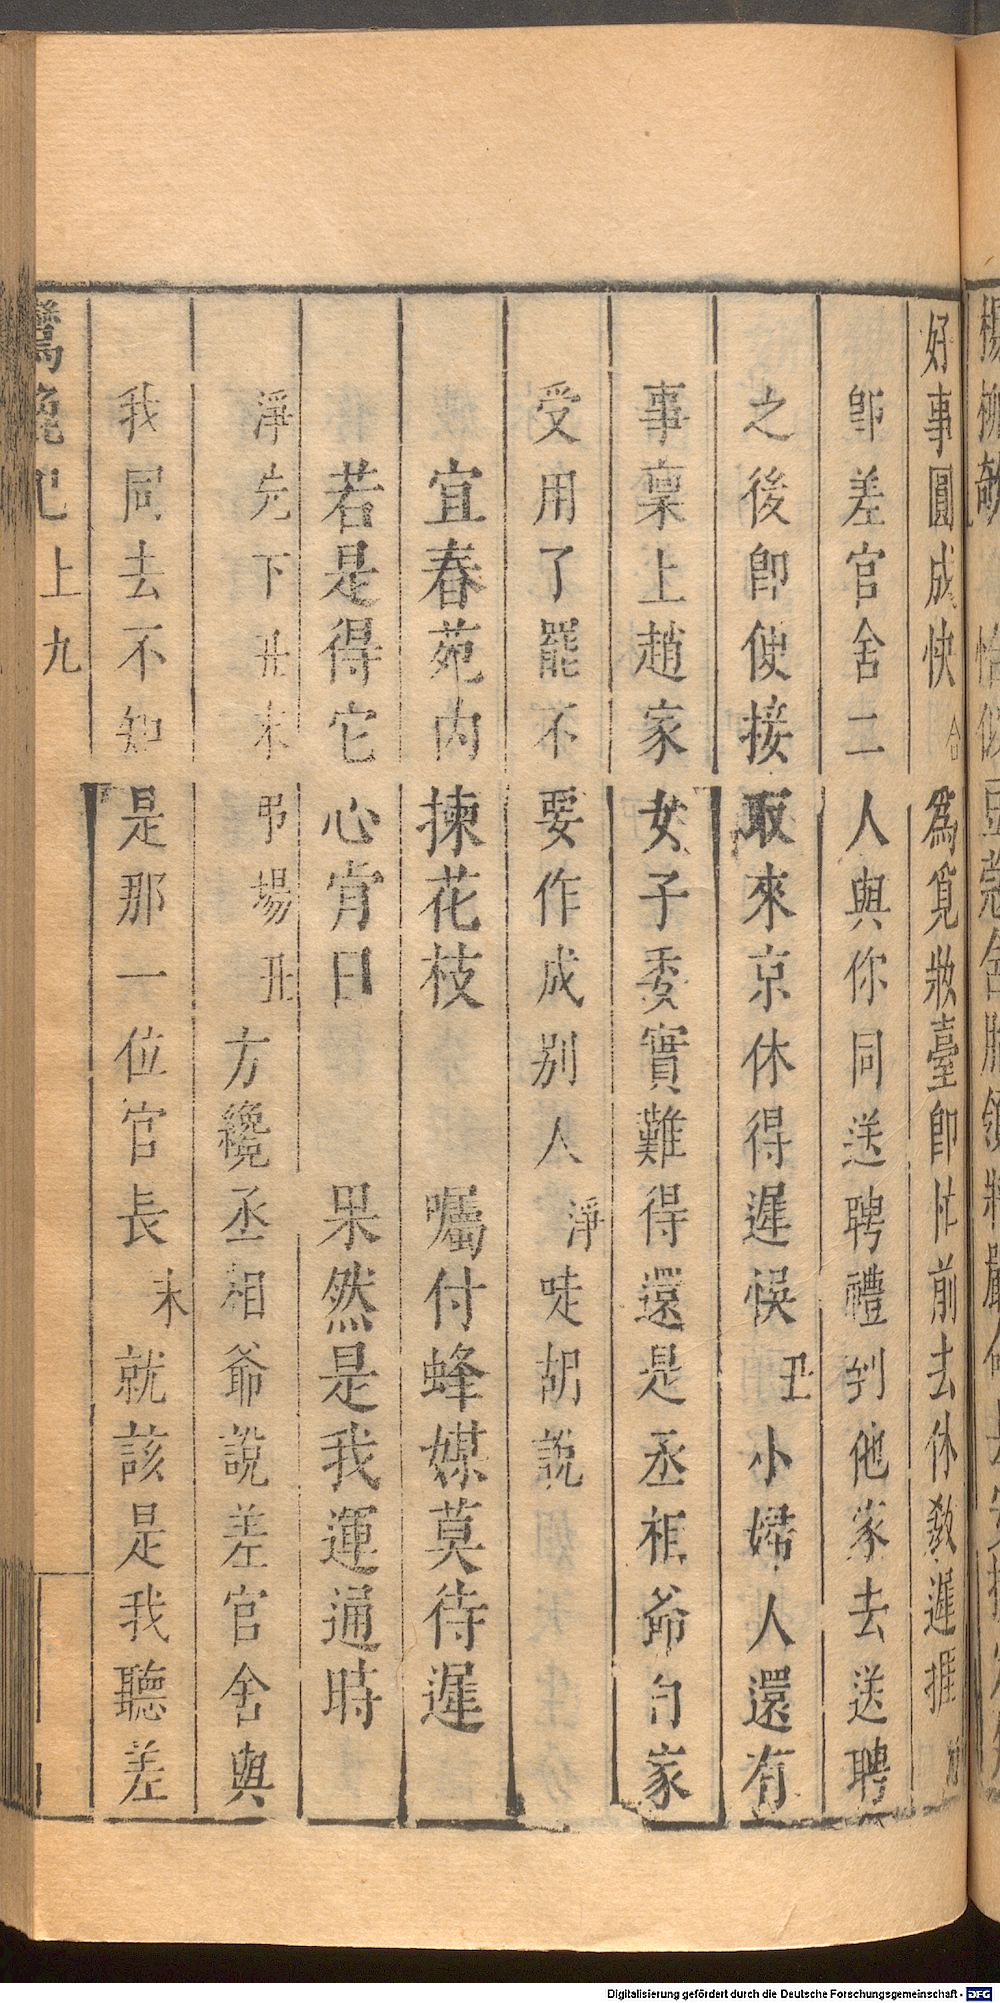 好事圓成快合爲覓妝臺卽忙前去休教遲捱
卽差官舍二人與你同送聘禮到他家去送聘
之後卽便接取來京休得遲悞丑小婦人還有
事稟上趙家女子委實難得還是丞相爺自家
受用了罷不要作成别人淨哇胡說
宜春苑內揀花枝 囑付蜂媒莫待遲
若是得它心肯日 果然是我運通時
淨先下丑末弔場丑方纔丞相爺說差官舍與
我同去不知是那一位官長末就該是我聽差
鸞鎞記 上 九
Digitalisierung gefördert durch die Deutsche Forschungsgemeinschaft - DFG